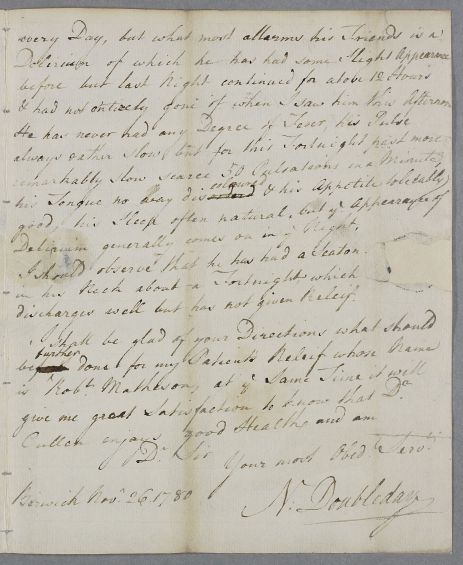 every Day, but what most allarms his Friends is a
Delirium of which he has had some slight Appearance
before but last Night continued for above 12 Hours
& had not entirely gone of when I saw him this Afternoon
He has never had any Degree of Fever, his Pulse
always rather slow, but for this Fortnight past more
remarkably slow scarce 50 Pulsations in a Minute,
his Tongue no way discoloured & his Appetite tolerably
good, his Sleep often natural, but ye Appearance of
Delirium generally comes on in ye Night,
I should observe that he has had a Seaton
in his Neck about a Fortnight which
discharges well but has not given Releif.
I shall be glad of your Directions what should
be further done for my Patient's Releif whose Name
is Robt. Matheson, at ye Same Time it will
give me great Satisfaction to know that Dr
Cullen enjoys good Health, and am
Dr Sir
Your most Obedt Servt
N. Doubleday
Berwick Novr 26. 1780